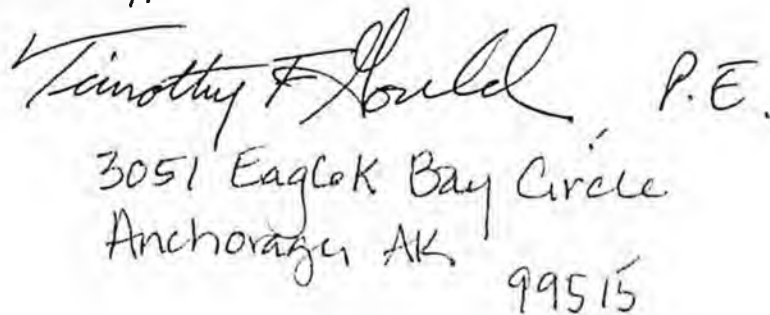 Timothy F Gould, P.E.
3051 Eaglek Bay Circle
Anchorage, AK
99515